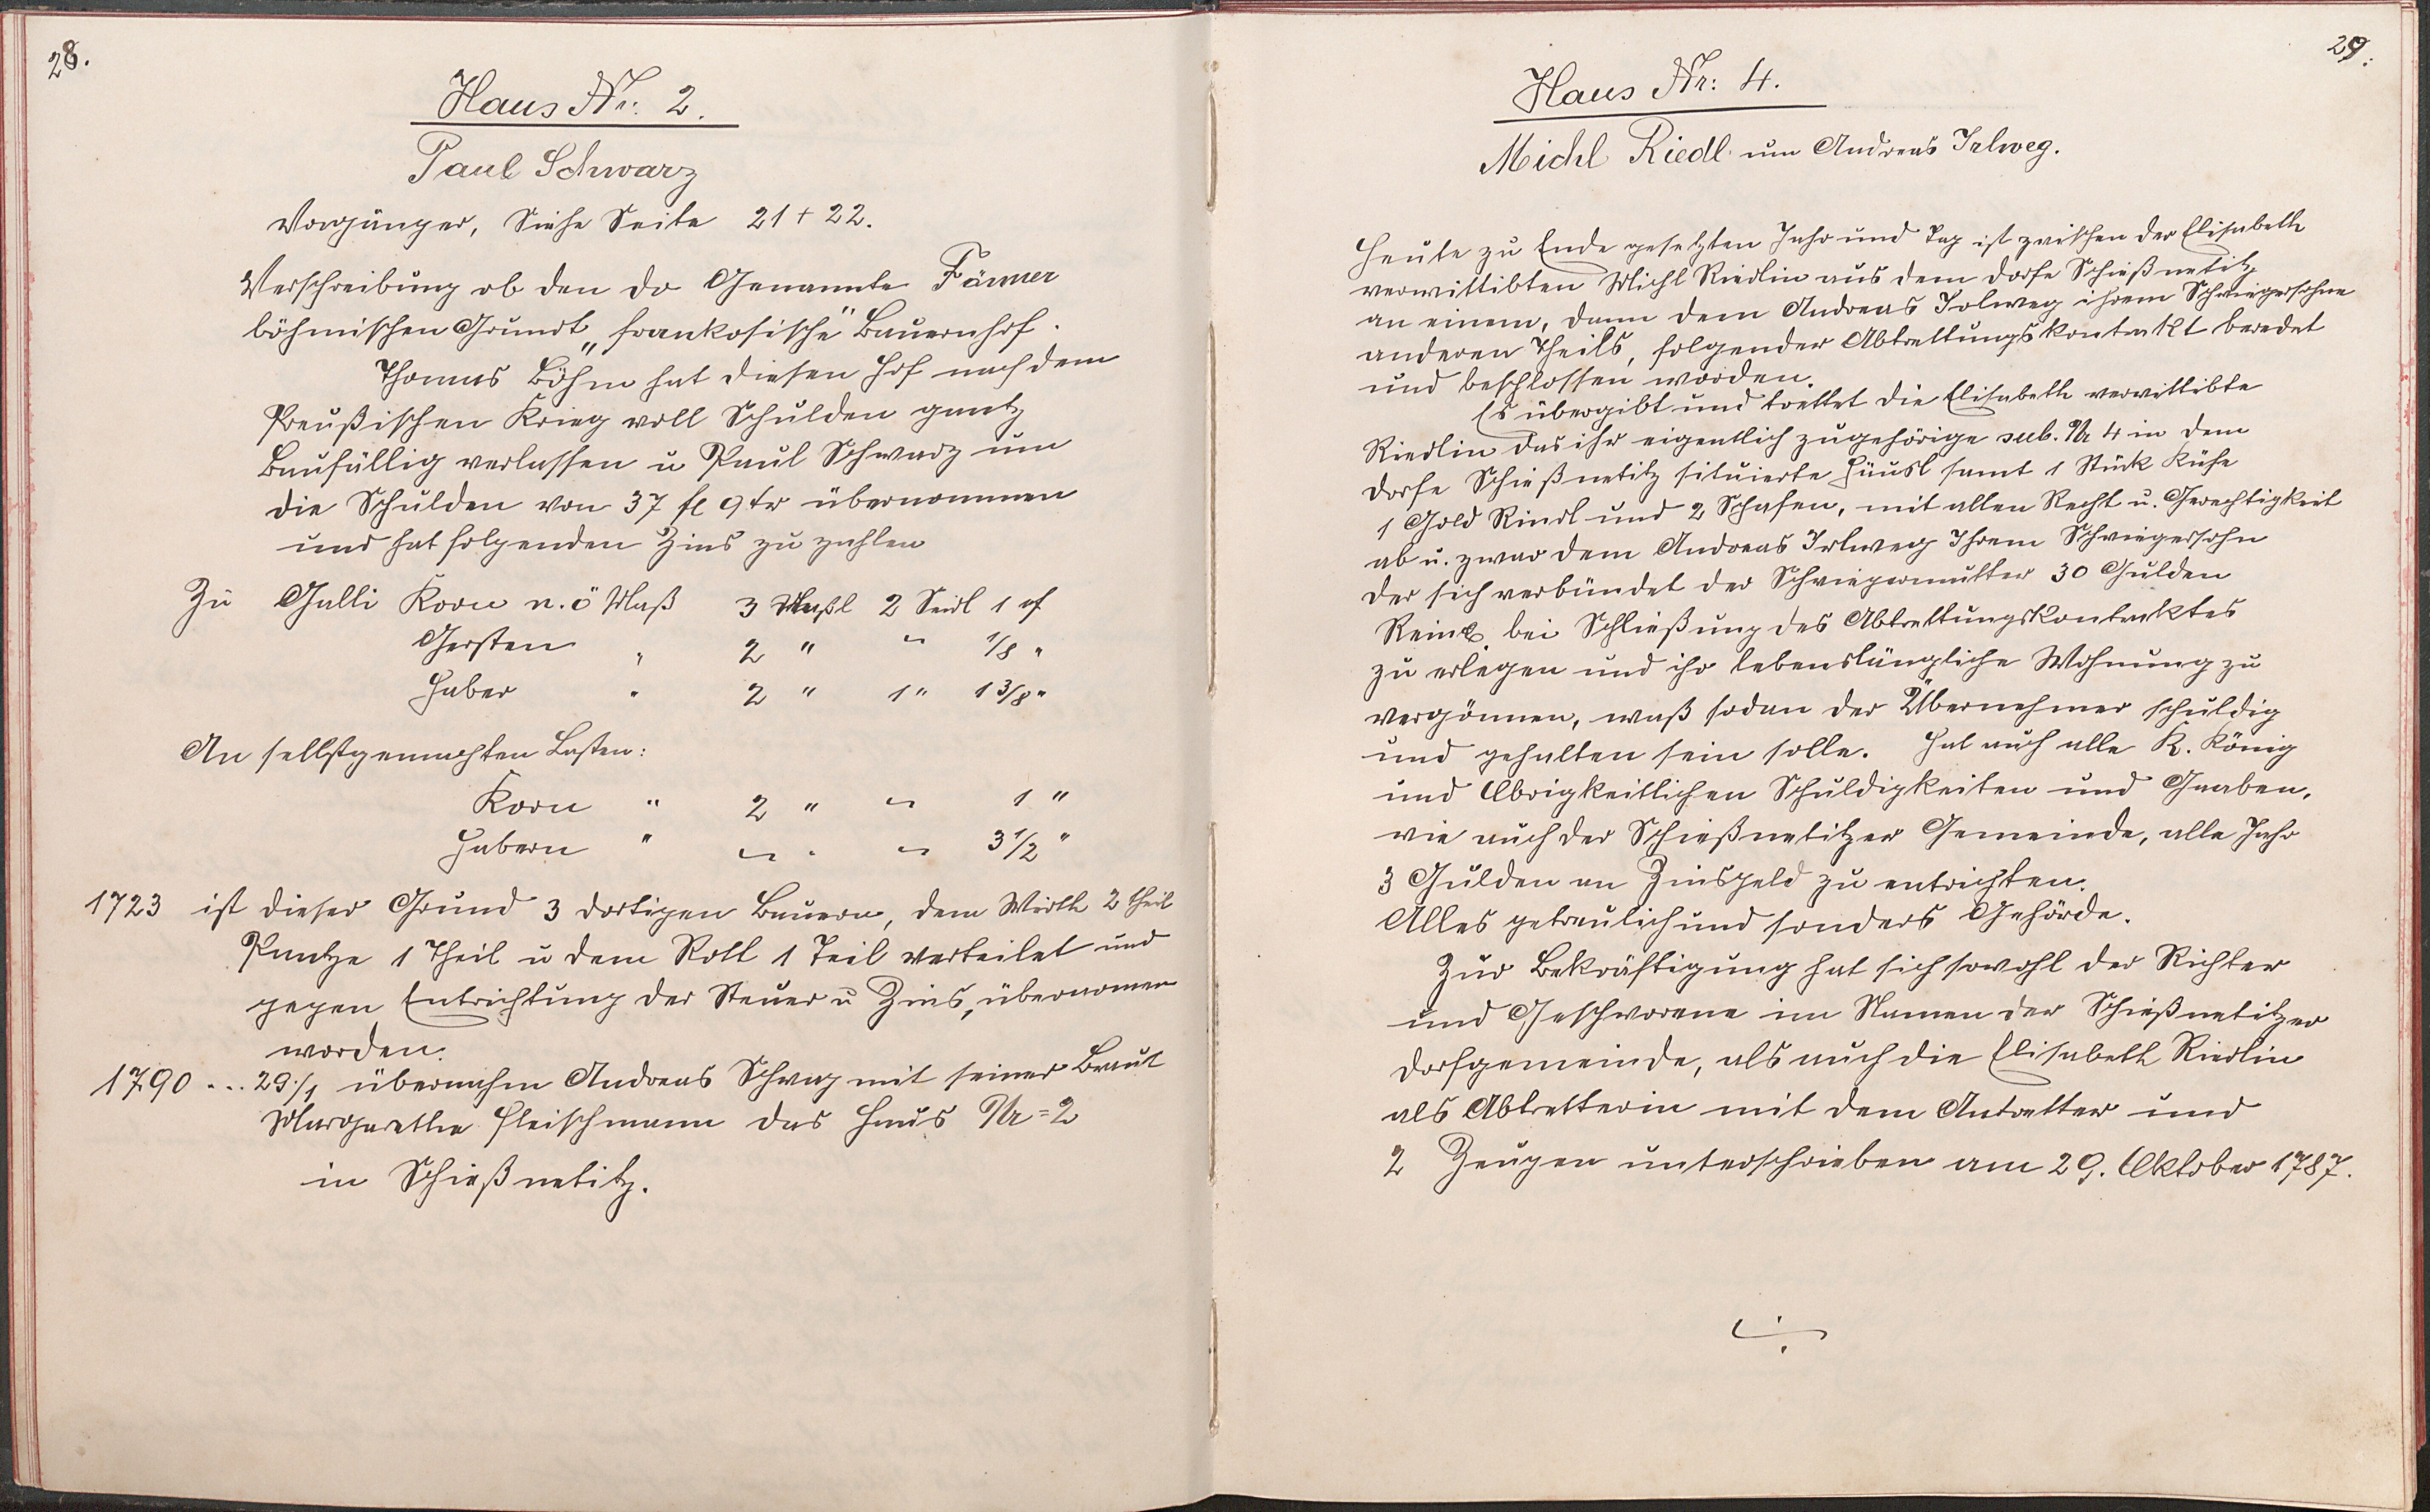 28.
Haus Nr. 2.
Paul Schwarz
Vorgänger, Siehe Seite 21 + 22.
Verschreibung ob den do Genannte
böhmischen Grundt „frankosische" Bauernhof.
Thomas Böhm hat diesen Hof nach dem
Preußischen Krieg voll Schulden gantz
Baufällig verlassen u Paul Schwarz um
die Schulden von 37 fl 9 kr übernommen
und hat folgenden Zins zu zahlen
Zu Galli Korn n.ö Maß 3 Maßl 2 Seidl 1
Gersten " 2 " - 1/8 "
Haber " 2 " 1 " 1 3/8 "
An selbstgemachten Lasten:
Korn " 2 " - 1 "
Habern " - " - 3 1/2 "
1723 ist dieser Grund 3 dortigen Bauern, dem Wirth 2 theil
1 Theil u dem Roll 1 Teil verteilet und
gegen Entrichtung der Steuer u Zins, übernomen
worden.
1790 ... 29./1 übernahm Andreas Schrag mit seiner Braut
Margaretha Fleischmann das Haus Nr = 2
in Schießnetitz.
29.
Haus Nr: 4.
Michl Riedl um Andreas Irlweg.
Heute zu Ende gesetzten Jahr und Tag ist zwischen der Elisabeth
verwittibten Michl Riedlin aus dem Dorfe Schießnetitz
an einem, dann dem Andreas Irlweg ihrem Schwiegersohne
anderen Theils, folgender Abtrettungskontrakt beredet
und beschlossen worden.
Es übergibt und trettet die Elisabeth verwittibte
Riedlin das ihr eigentlich zugehörige sub. Nr 4 in dem
Dorfe Schießnetitz situierte Häusl samt 1 Stück Kühe
1 Gold Rindl und 2 Schafen, mit allen Recht u. Gerechtigkeit
ab u. zwar dem Andreas Irlweg Ihrem Schwiegersohn
der sich verbündet der Schwiegermutter 30 Gulden
bei Schließung des Abtrettungskontraktes
zu erlegen und ihr lebenslängliche Wohnung zu
vergönnen, waß sodan der Übernehmer schuldig
und gehalten sein solle. Hat auch alle K. König
und Obrigkeitlichen Schuldigkeiten und Gaaben,
wie auch der Schießnetitzer Gemeinde, alle Jahr
3 Gulden an Zinsgeld zu entrichten.
Alles getreulich und sonders Gehörde.
Zur Bekräftigung hat sich sowohl der Richter
und Geschworene im Namen der Schießnetitzer
Dorfgemeinde, als auch die Elisabeth Riedlin
als Abtretterin mit dem Antretter und
2 Zeugen unterschrieben am 29. Oktober 1787.